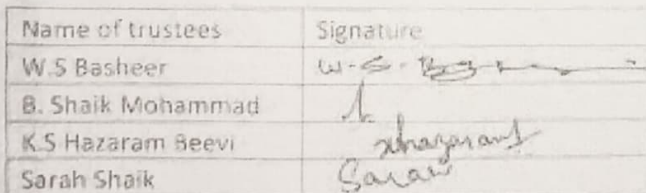 Name of trustees Signature
W.S Basheer W-S-
B. Shaik Mohammad
K.S Hazaram Beevi
Sarah Shaik Sarah